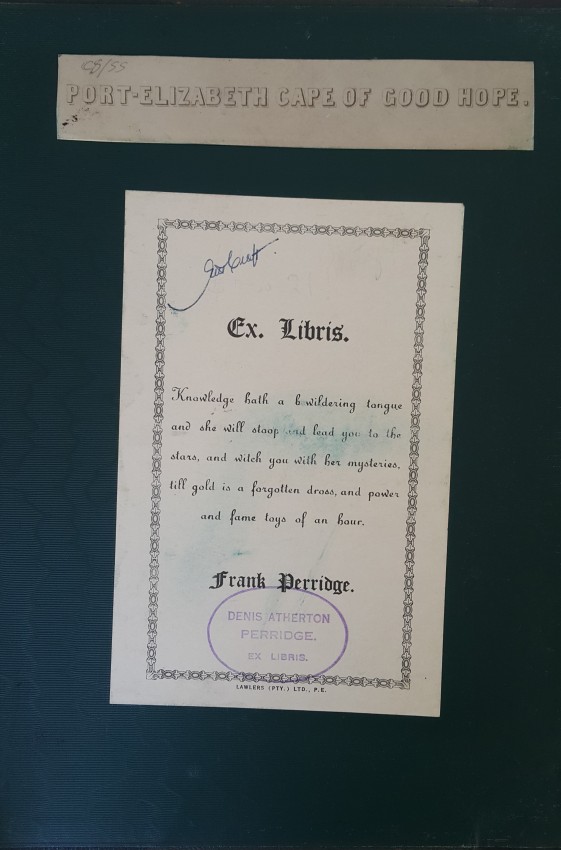 CB/55
PORT-ELIZABETH CAPE OF GOOD HOPE.
Ex. Libris.
Knowledge hath a bewildering tongue
and she will stoop and lead you to the
stars, and witch you with her mysteries,
till gold is a forgotten dross, and power
and fame toys of an hour.
Frank Perridge.
DENIS ATHERTON
PERRIDGE.
EX LIBRIS.
LAWLERS (PTY.) LTD., P.E.